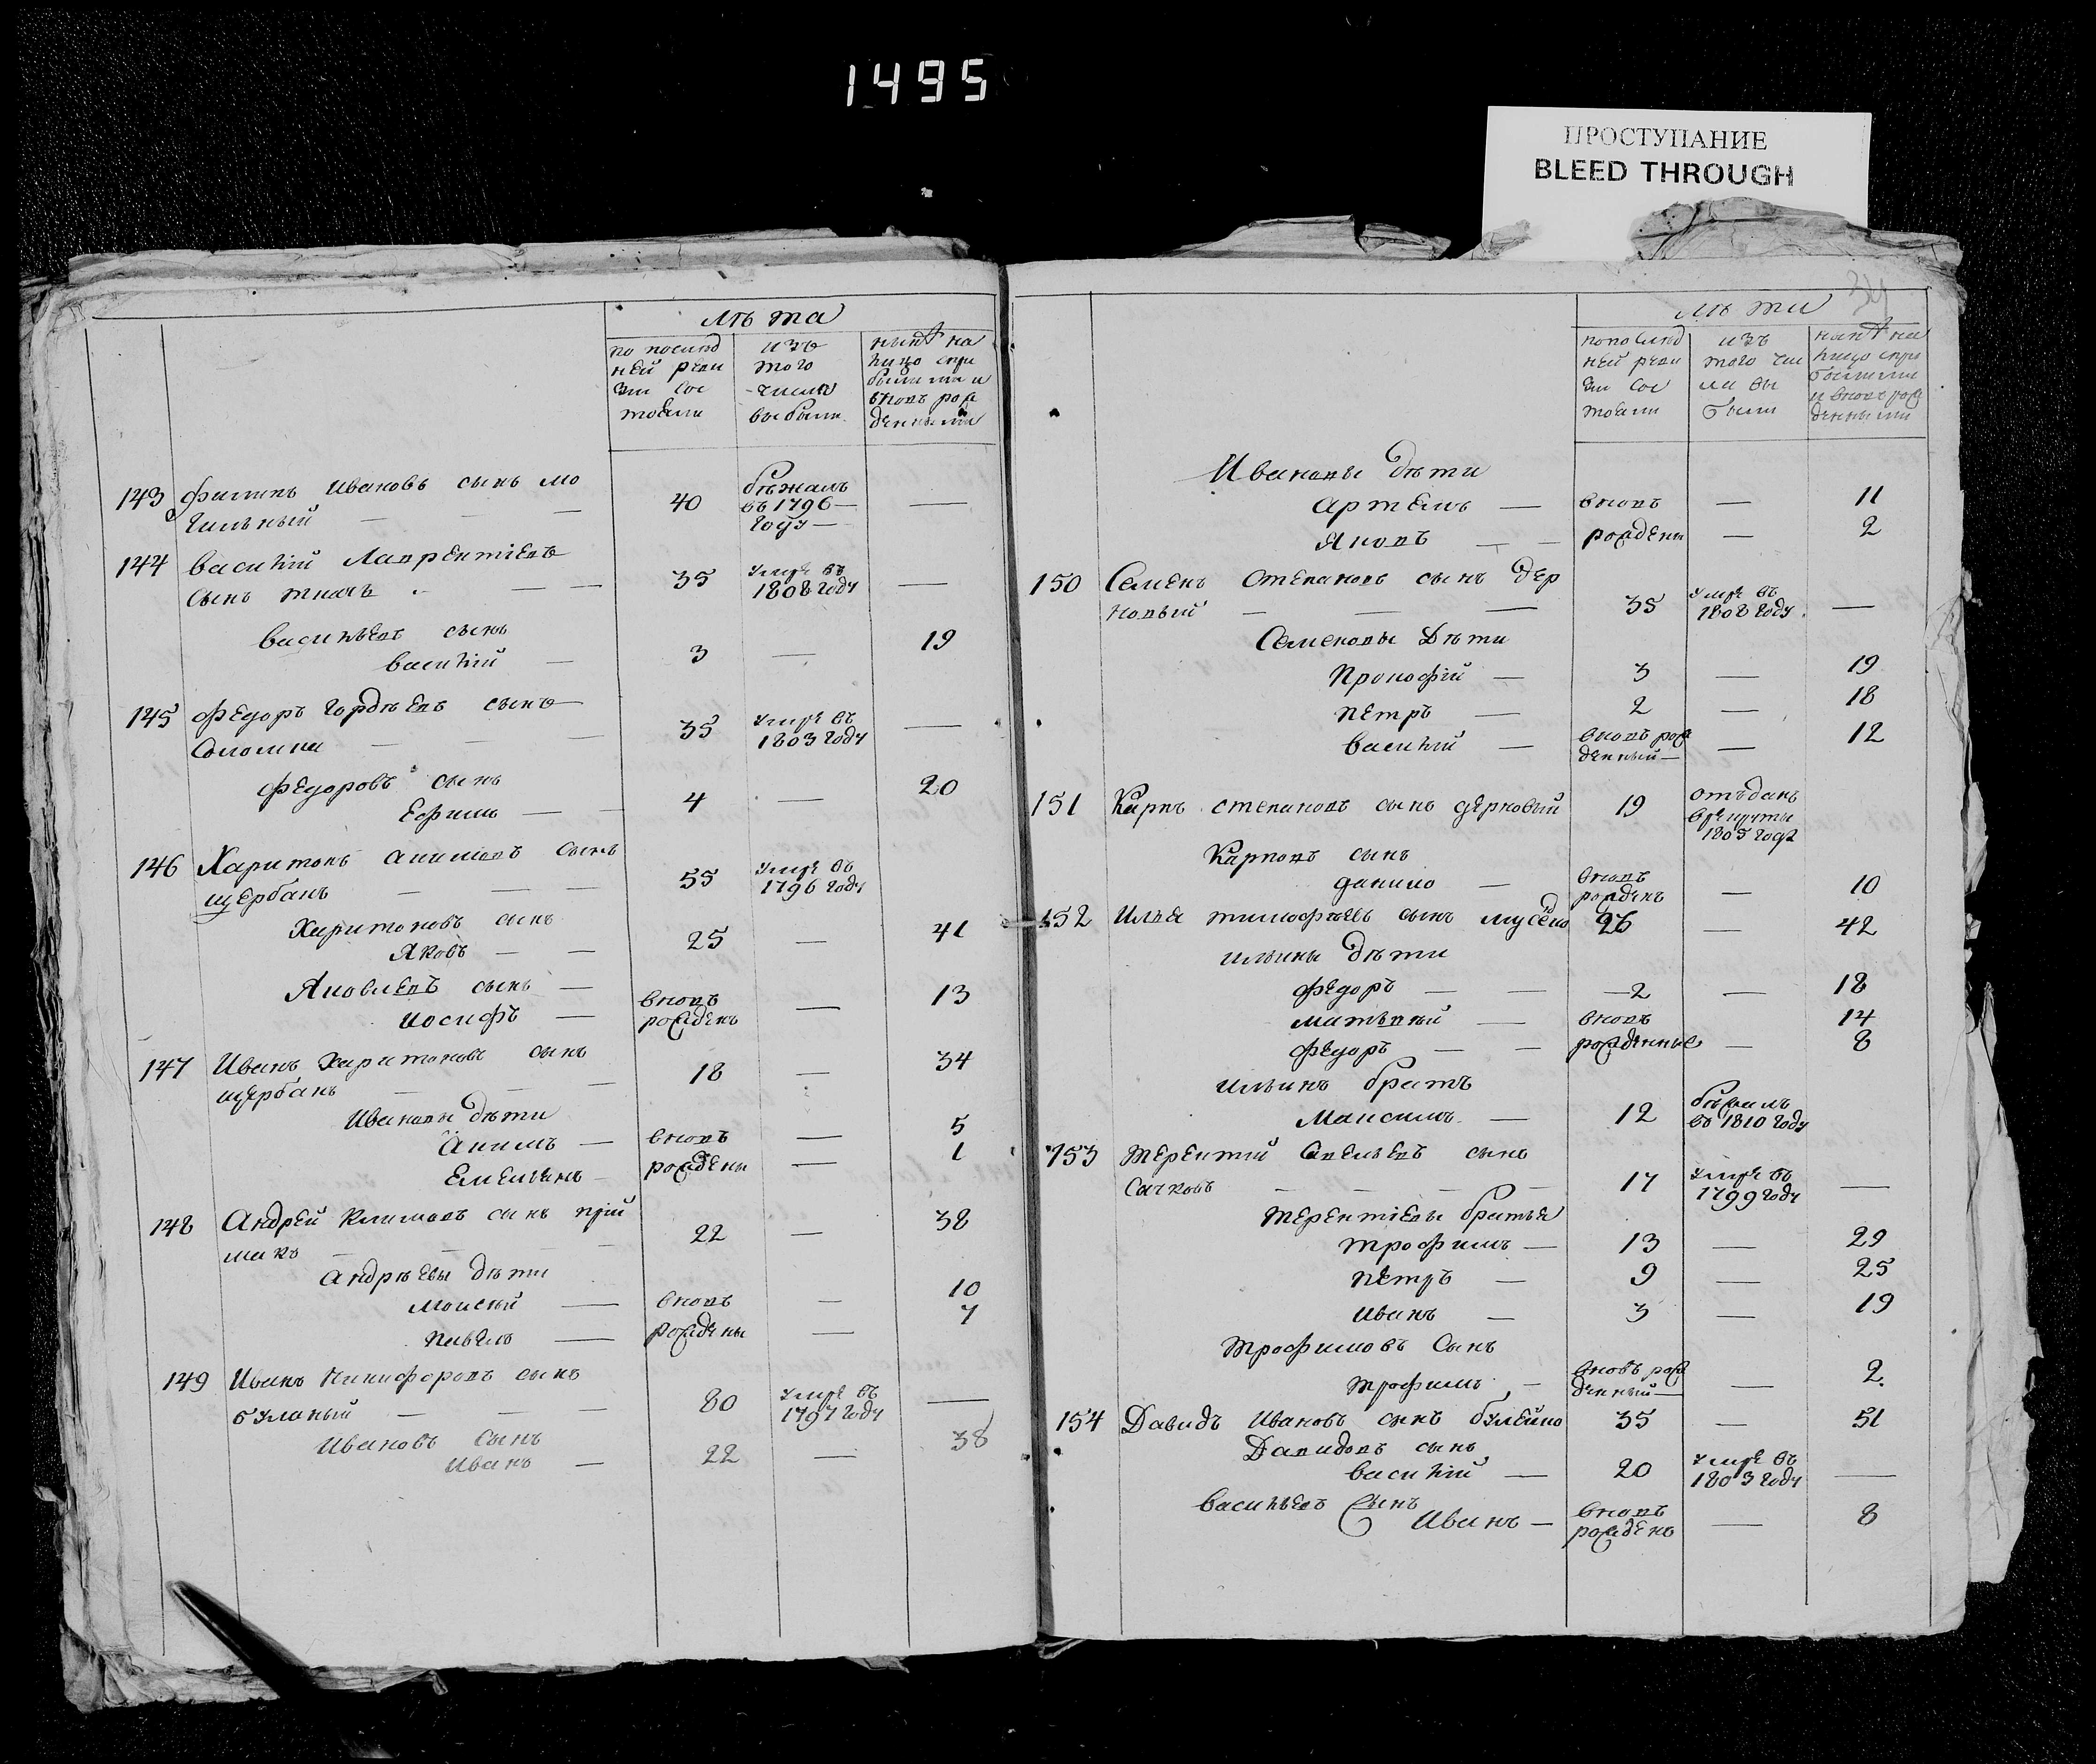 1495
ПРОСТУПАНИЕ
BLEED THROUGH
лѣта
по послѣд
ней реви
зіи сос
тояли
изъ
того
числа
выбыли
нынѣ на
лицо съ при
былыми и
вновь рож
денными
143 Филипъ Ивановъ сынъ мо
гильный — — — 40 бѣжалъ въ 1796 году — —
144 Василій Лаврентіевъ
сынъ ткачъ — — 35 умре въ 1808 году —
Васильевъ сынъ
Василій — 3 — 19
145 Федоръ Гордѣевъ сынъ
Соломка — — — 35 умре въ 1803 году —
Федоровъ сынъ
Ефимъ — — 4 — 20
146 Харитонъ Акимовъ сынъ
щербань — — — 55 умре въ 1796 году
Харитоновъ сынъ
Яковъ — — 25 — 41
Яковлевъ сынъ —
Иосифъ — вновь рожденъ — 13
147 Иванъ Харитоновъ сынъ
щербань — — — 18 — 34
Ивановы дѣти
Акимъ — вновь — 5
Емельянъ — рождены — 1
148 Андрей Климовъ сынъ прій
макъ — — — 22 — 38
Андрѣевы дѣти
Моисей — вновь — 10
Павелъ — рождены — 7
149 Иванъ Никифоровъ сынъ
буланый — — — 80 умре въ 1797 году —
Ивановъ сынъ
Иванъ — 22 — 38
34
лѣта
по послѣд
ней реви
зіи сос
тояли
изъ
того чис
ла вы
были
нынѣ на
лицо съ при
былыми
и вновь рож
денными
Ивановы дѣти
Артемъ — вновь — 11
Яковъ — — рождены — 2
150 Семенъ Степановъ сынъ дер
новый — — — 35 умре въ 1808 году —
Семеновы дѣти
Прокофій — 3 — 19
Петръ — 2 — 18
Василій — вновь рож денный — — 12
151 Карпъ Степановъ сынъ дерновый 19 отъданъ в рекруты 1805 года
Карповъ сынъ
Данило — вновь рожденъ — 10
152 Илья Тимофѣевъ сынъ 26 — 42
Ильины дѣти
Федоръ — — 2 — 18
Матвѣй — вновь 14
Федоръ — — рожденные — 8
Ильинъ братъ
Максимъ — 12 бѣжалъ въ 1810 году
153 Терентій Савельевъ сынъ
Сачковъ — — — — 17 умре въ 1799 году —
Терентіевы братья
Трофимъ — 13 — 29
Петръ — 9 — 25
Иванъ — 3 — 19
Трофимовъ сынъ
Трофимъ — вновь рож денный — — 2
154 Давидъ Ивановъ сынъ 35 — 51
Давидовъ сынъ
Василій — 20 умре въ 1803 году —
Васильевъ сынъ
Иванъ — вновь рожденъ — 8